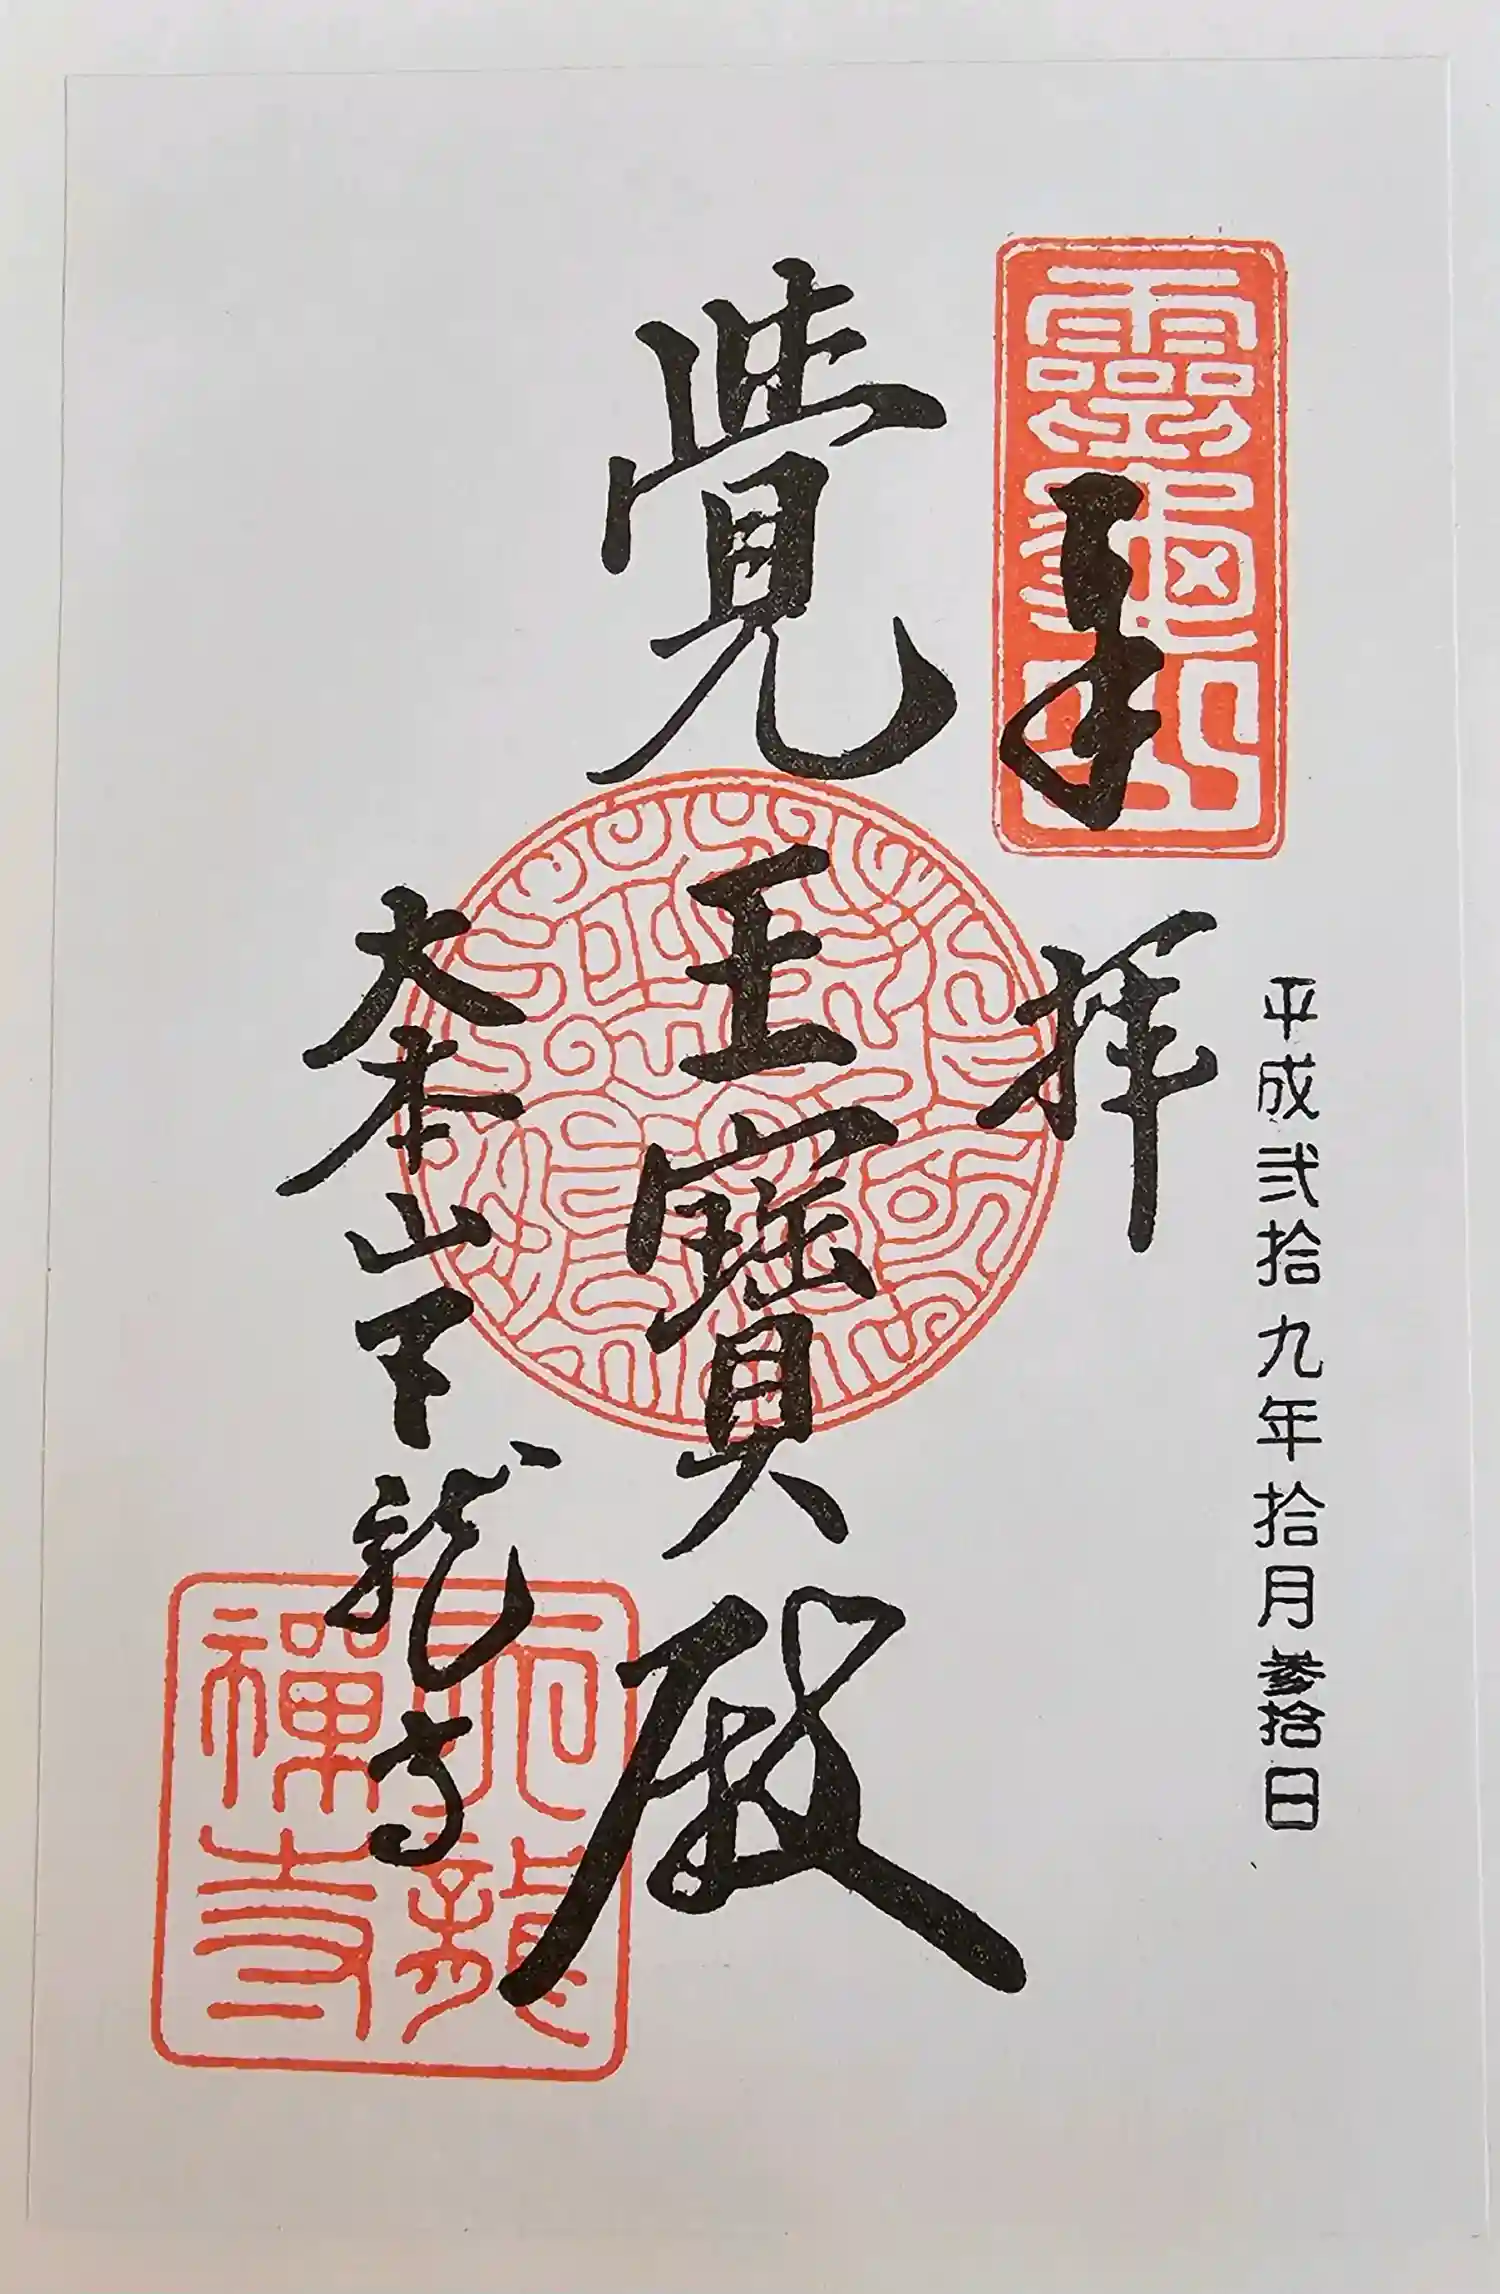 平成弐拾九年拾月参拾日
奉拝
靈龜山
覺王寶殿
大本山天龍寺
天龍
禪寺